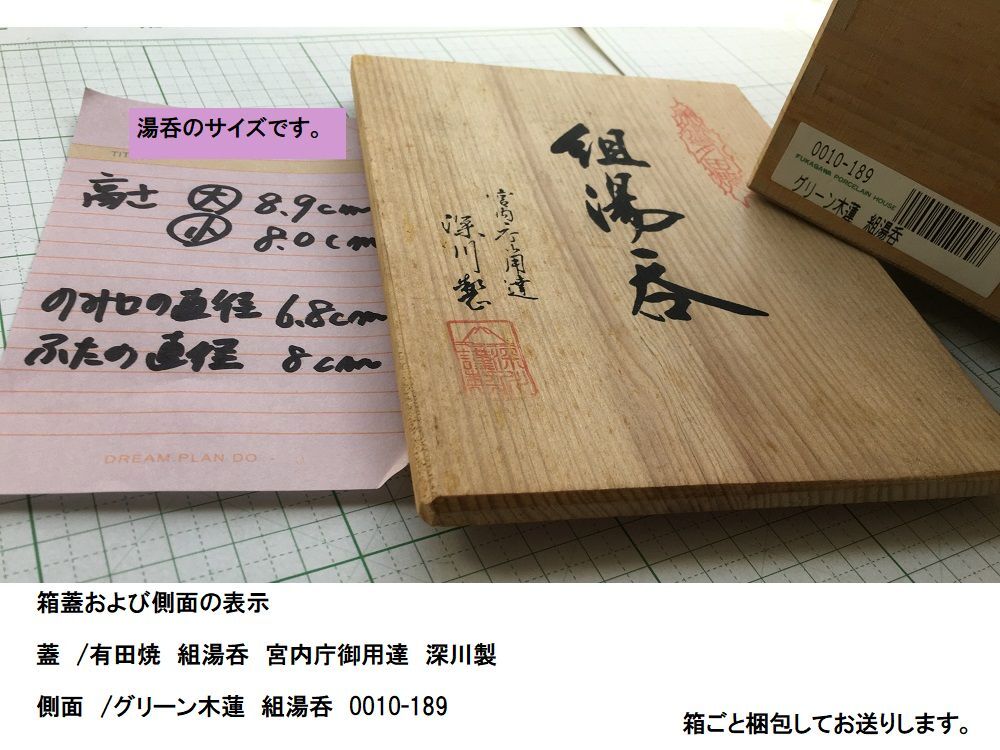 湯呑のサイズです。
TIT
高さ 大 8.9cm
小 8.0cm
のみ口の直径 6.8cm
ふたの直径 8cm
DREAM.PLAN.DO
組湯呑
宮内庁御用達
深川製
0010-189
FUKAGAWA PORCELAIN HOUSE
グリーン木蓮 組湯呑
箱蓋および側面の表示
蓋 /有田焼 組湯呑 宮内庁御用達 深川製
側面 /グリーン木蓮 組湯呑 0010-189
箱ごと梱包してお送りします。